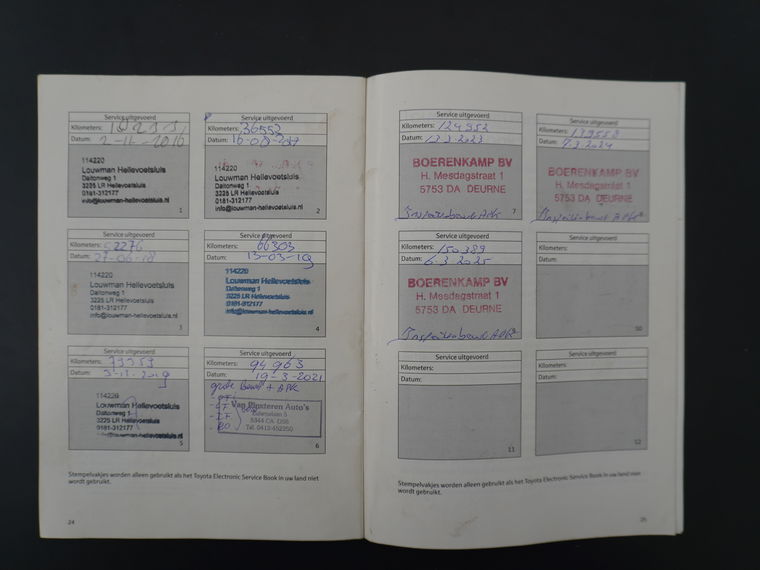 Service uitgevoerd
Kilometers:
Datum: 2-11-2016
114220
Louwman Hellevoetsluis
Daltonweg 1
3225 LR Hellevoetsluis
0181-312177
info@louwman-hellevoetsluis.nl
1
Service uitgevoerd
Kilometers: 36552
Datum:
114220
Louwman Hellevoetsluis
Daltonweg 1
3225 LR Hellevoetsluis
0181-312177
info@louwman-hellevoetsluis.nl
2
Service uitgevoerd
Kilometers: 52276
Datum: 27-06-18
114220
Louwman Hellevoetsluis
Daltonweg 1
3225 LR Hellevoetsluis
0181-312177
info@louwman-hellevoetsluis.nl
3
Service uitgevoerd
Kilometers: 66303
Datum: 13-03-19
114220
Louwman Hellevoetsluis
Daltonweg 1
3225 LR Hellevoetsluis
0181-312177
info@louwman-hellevoetsluis.nl
4
Service uitgevoerd
Kilometers: 79359
Datum:
114220
Louwman Hellevoetsluis
Daltonweg 1
3225 LR Hellevoetsluis
0181-312177
info@louwman-hellevoetsluis.nl
5
Service uitgevoerd
Kilometers: 94963
Datum: 19-3-2021
grote beurt + APK
Van Pinxteren Auto's
Tel. 0413-452350
6
Stempelvakjes worden alleen gebruikt als het Toyota Electronic Service Book in uw land niet
wordt gebruikt.
24
Service uitgevoerd
Kilometers: 124952
Datum: 13-3-2023
BOERENKAMP BV
H. Mesdagstraat 1
5753 DA DEURNE
7
Service uitgevoerd
Kilometers: 139558
Datum: 7-3-2024
BOERENKAMP BV
H. Mesdagstraat 1
5753 DA DEURNE
Service uitgevoerd
Kilometers: 150389
Datum: 6-3-2025
BOERENKAMP BV
H. Mesdagstraat 1
5753 DA DEURNE
Service uitgevoerd
Kilometers:
Datum:
10
Service uitgevoerd
Kilometers:
Datum:
11
Service uitgevoerd
Kilometers:
Datum:
12
Stempelvakjes worden alleen gebruikt als het Toyota Electronic Service Book in uw land niet
wordt gebruikt.
25